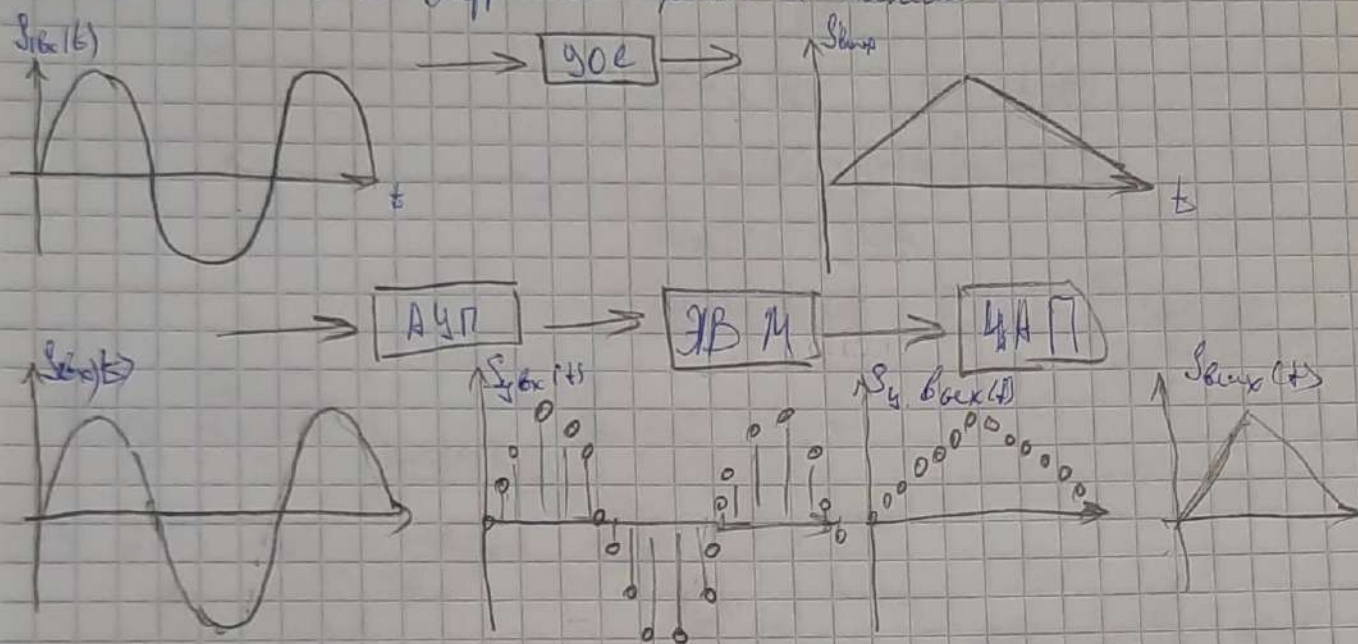 Sвх(t)
УОС
Sвыхр
t
t
АЦП
ЭВМ
ЦАП
Sвх(t)
Sц вх(t)
Sц вых(t)
Sвых(t)